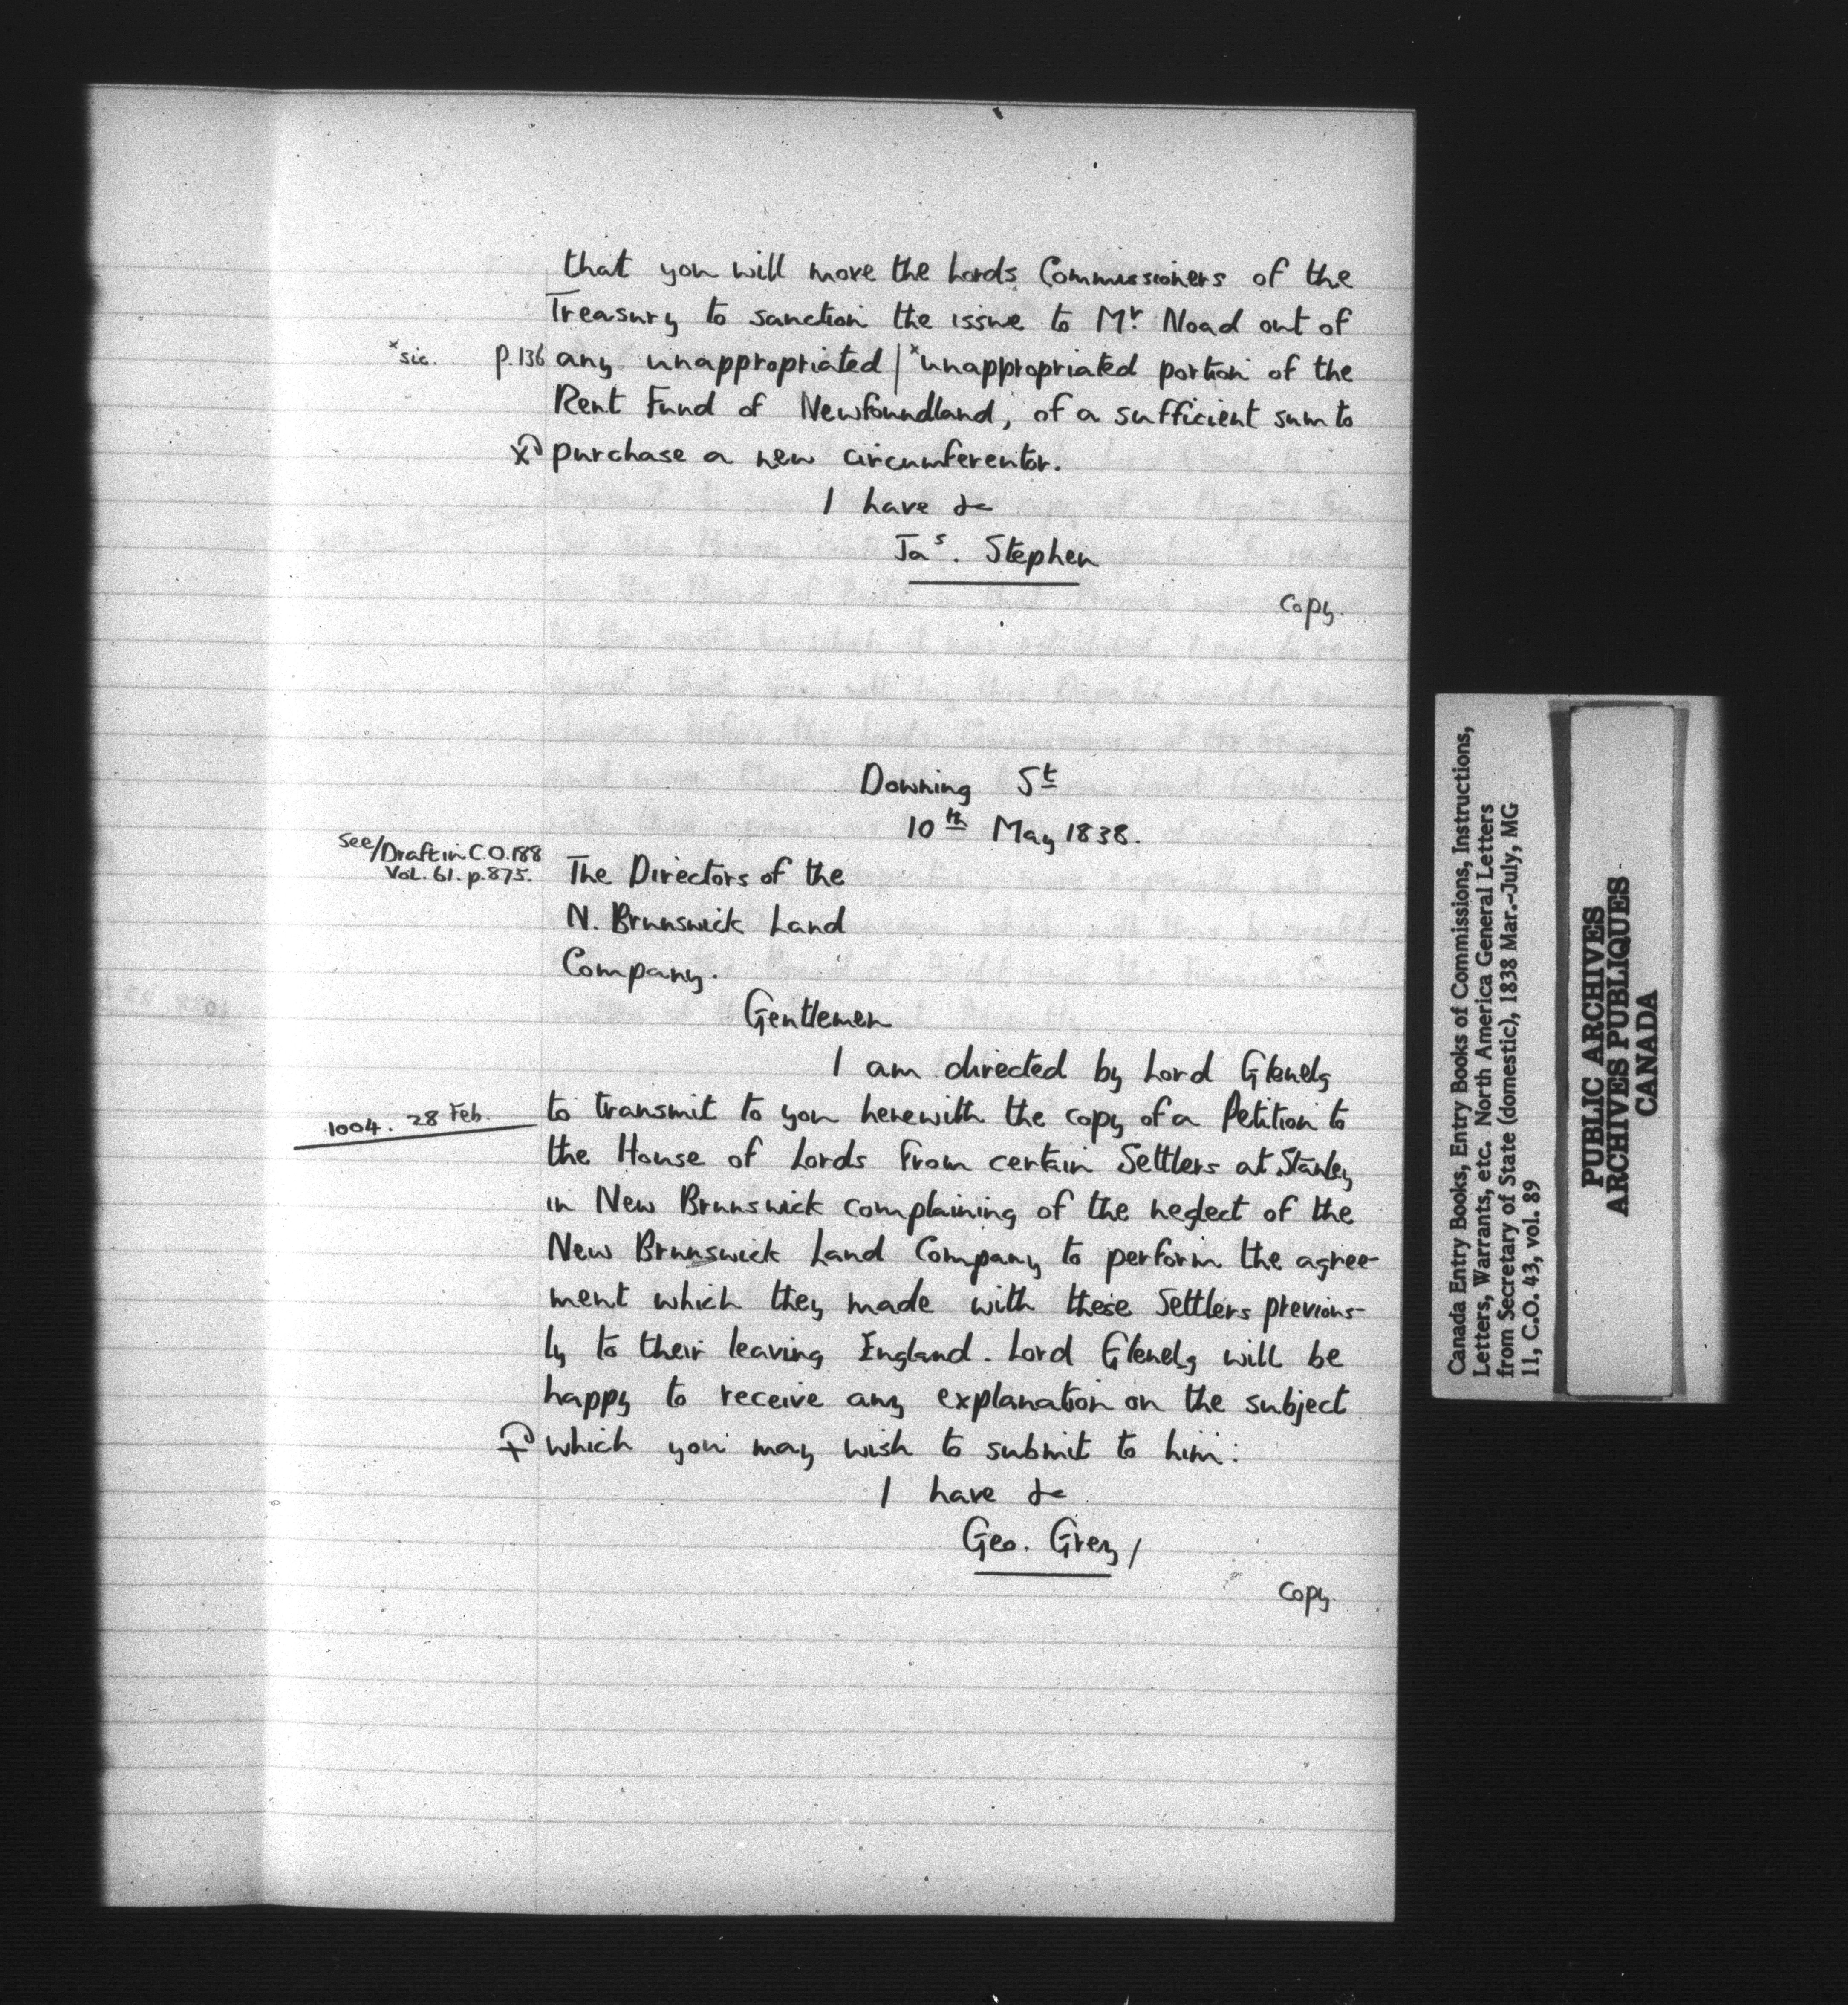 that you will move the Lords Commissioners of the
Treasury to sanction the issue to Mr. Noad out of
*sic. p.136 any unappropriated | *unappropriated portion of the
Rent Fund of Newfoundland, of a sufficient sum to
purchase a new circumferentor.
I have &c
Jas. Stephen
Copy.
Downing St
10th May 1838.
See/Draft in C.O.188
Vol. 61. p.875.
The Directors of the
N. Brunswick Land
Company.
Gentlemen
I am directed by Lord Glenelg
1004. 28 Feb.
to transmit to you herewith the copy of a Petition to
the House of Lords from certain Settlers at Stanley
in New Brunswick complaining of the neglect of the
New Brunswick Land Company to perform the agree-
ment which they made with these Settlers previous-
ly to their leaving England. Lord Glenelg will be
happy to receive any explanation on the subject
which you may wish to submit to him.
I have &c
Geo. Grey/
Copy.
Canada Entry Books, Entry Books of Commissions, Instructions,
Letters, Warrants, etc. North America General Letters
from Secretary of State (domestic), 1838 Mar.-July, MG
11, C.O. 43, vol. 89
PUBLIC ARCHIVES
ARCHIVES PUBLIQUES
CANADA